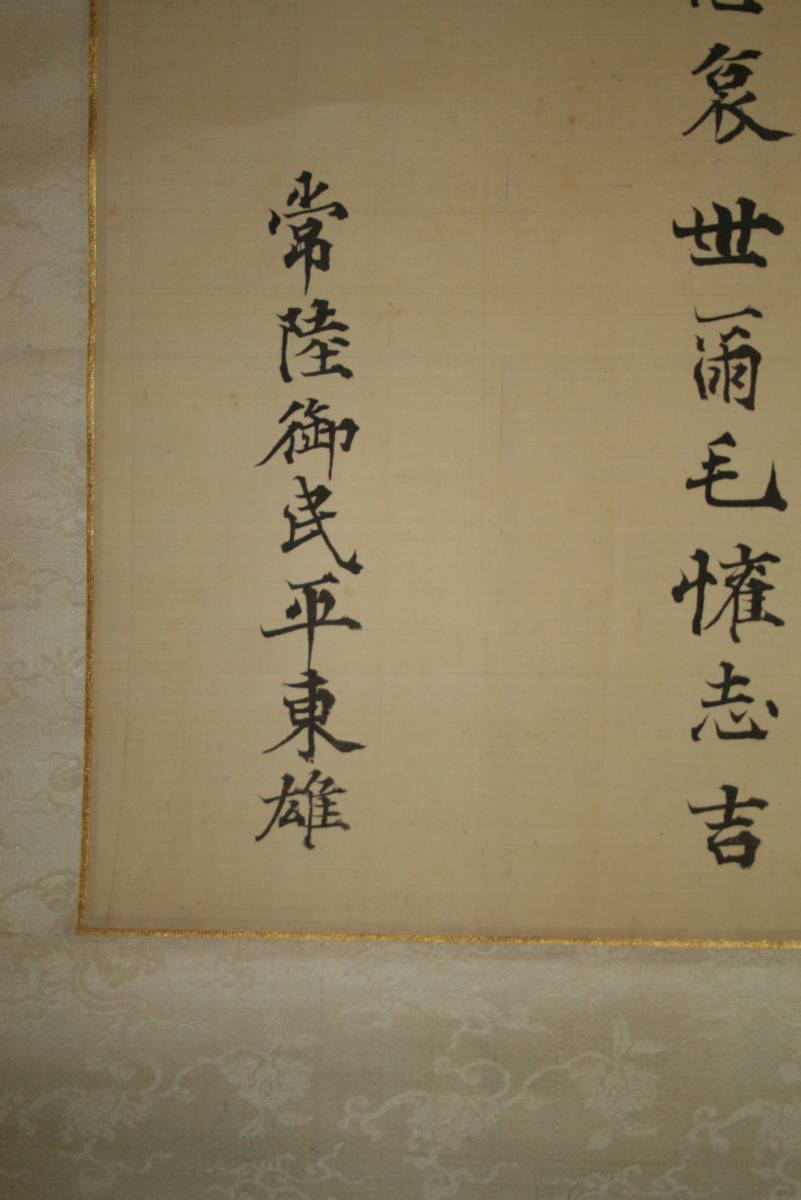 哀世爾毛慛志吉
常陸御民平東雄